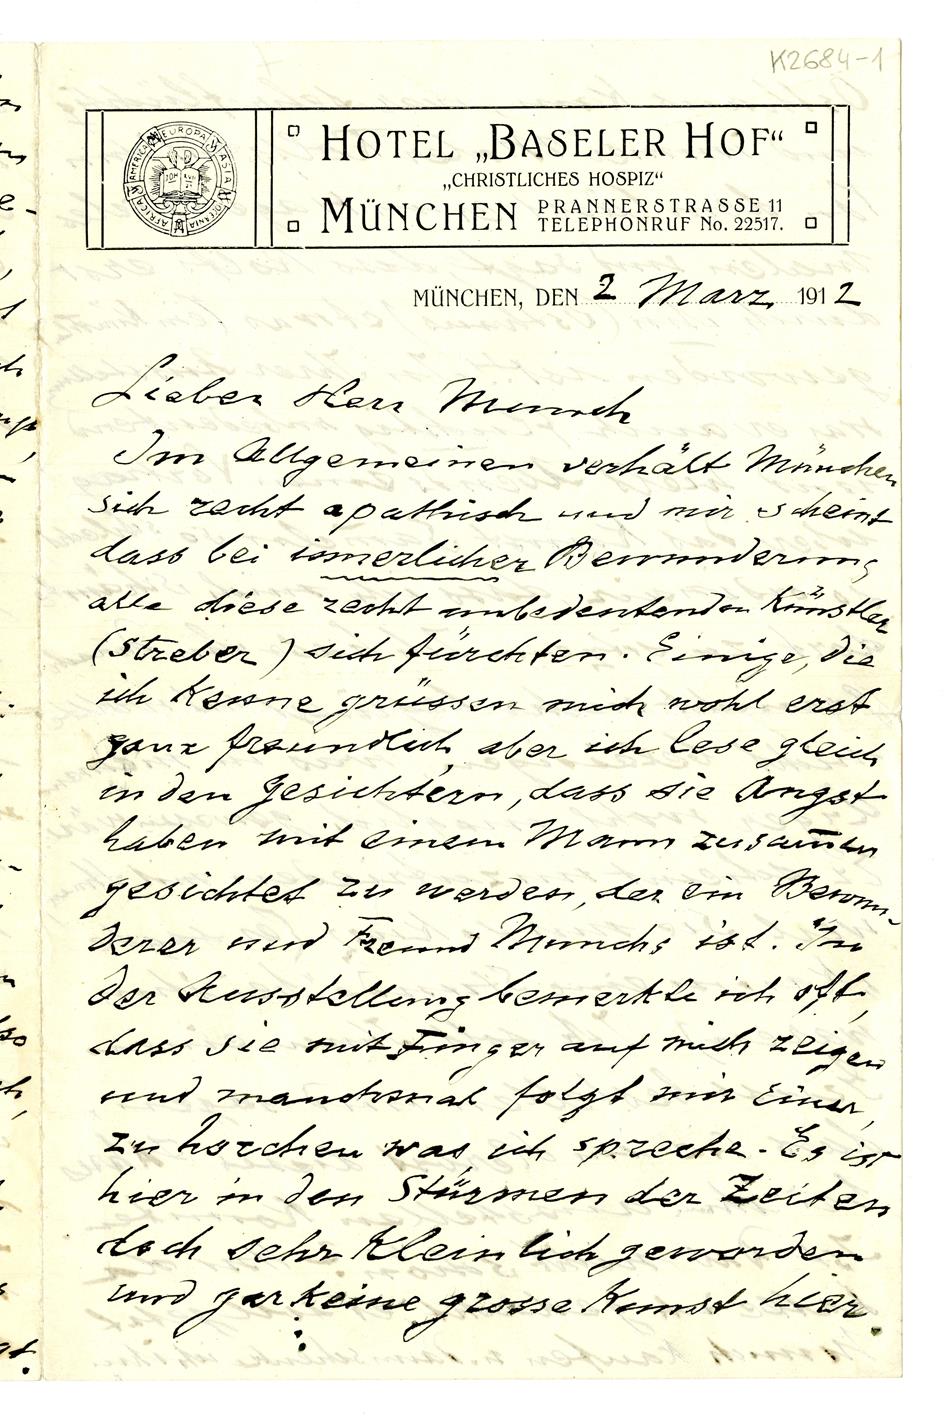 K2684-1
HOTEL „BASELER HOF“
„CHRISTLICHES HOSPIZ“
MÜNCHEN PRANNERSTRASSE 11
TELEPHONRUF No. 22517.
EUROPA
ASIA
AFRICA
AMERICA
MÜNCHEN, DEN 2 März 1912
Lieber Herr Munch
Im Allgemeinen verhält München
sich recht apathisch und mir scheint
dass bei innerlicher Bewunderung
alle diese recht unbedeutenden Künstler
(Streber) sich fürchten. Einige, die
ich kenne grüssen mich wohl erst
ganz freundlich, aber ich lese gleich
in den Gesichtern, dass sie Angst
haben mit einem Mann zusammen
gesichtet zu werden, der ein Bewun-
derer und Freund Munchs ist. In
der Ausstellung bemerkte ich oft,
dass sie mit Finger auf mich zeigen
und manchmal folgt mir Einer,
zu horchen was ich spreche. Es ist
hier in den Stürmen der Zeiten
doch sehr kleinlich geworden
und gar keine grosse Kunst hier.